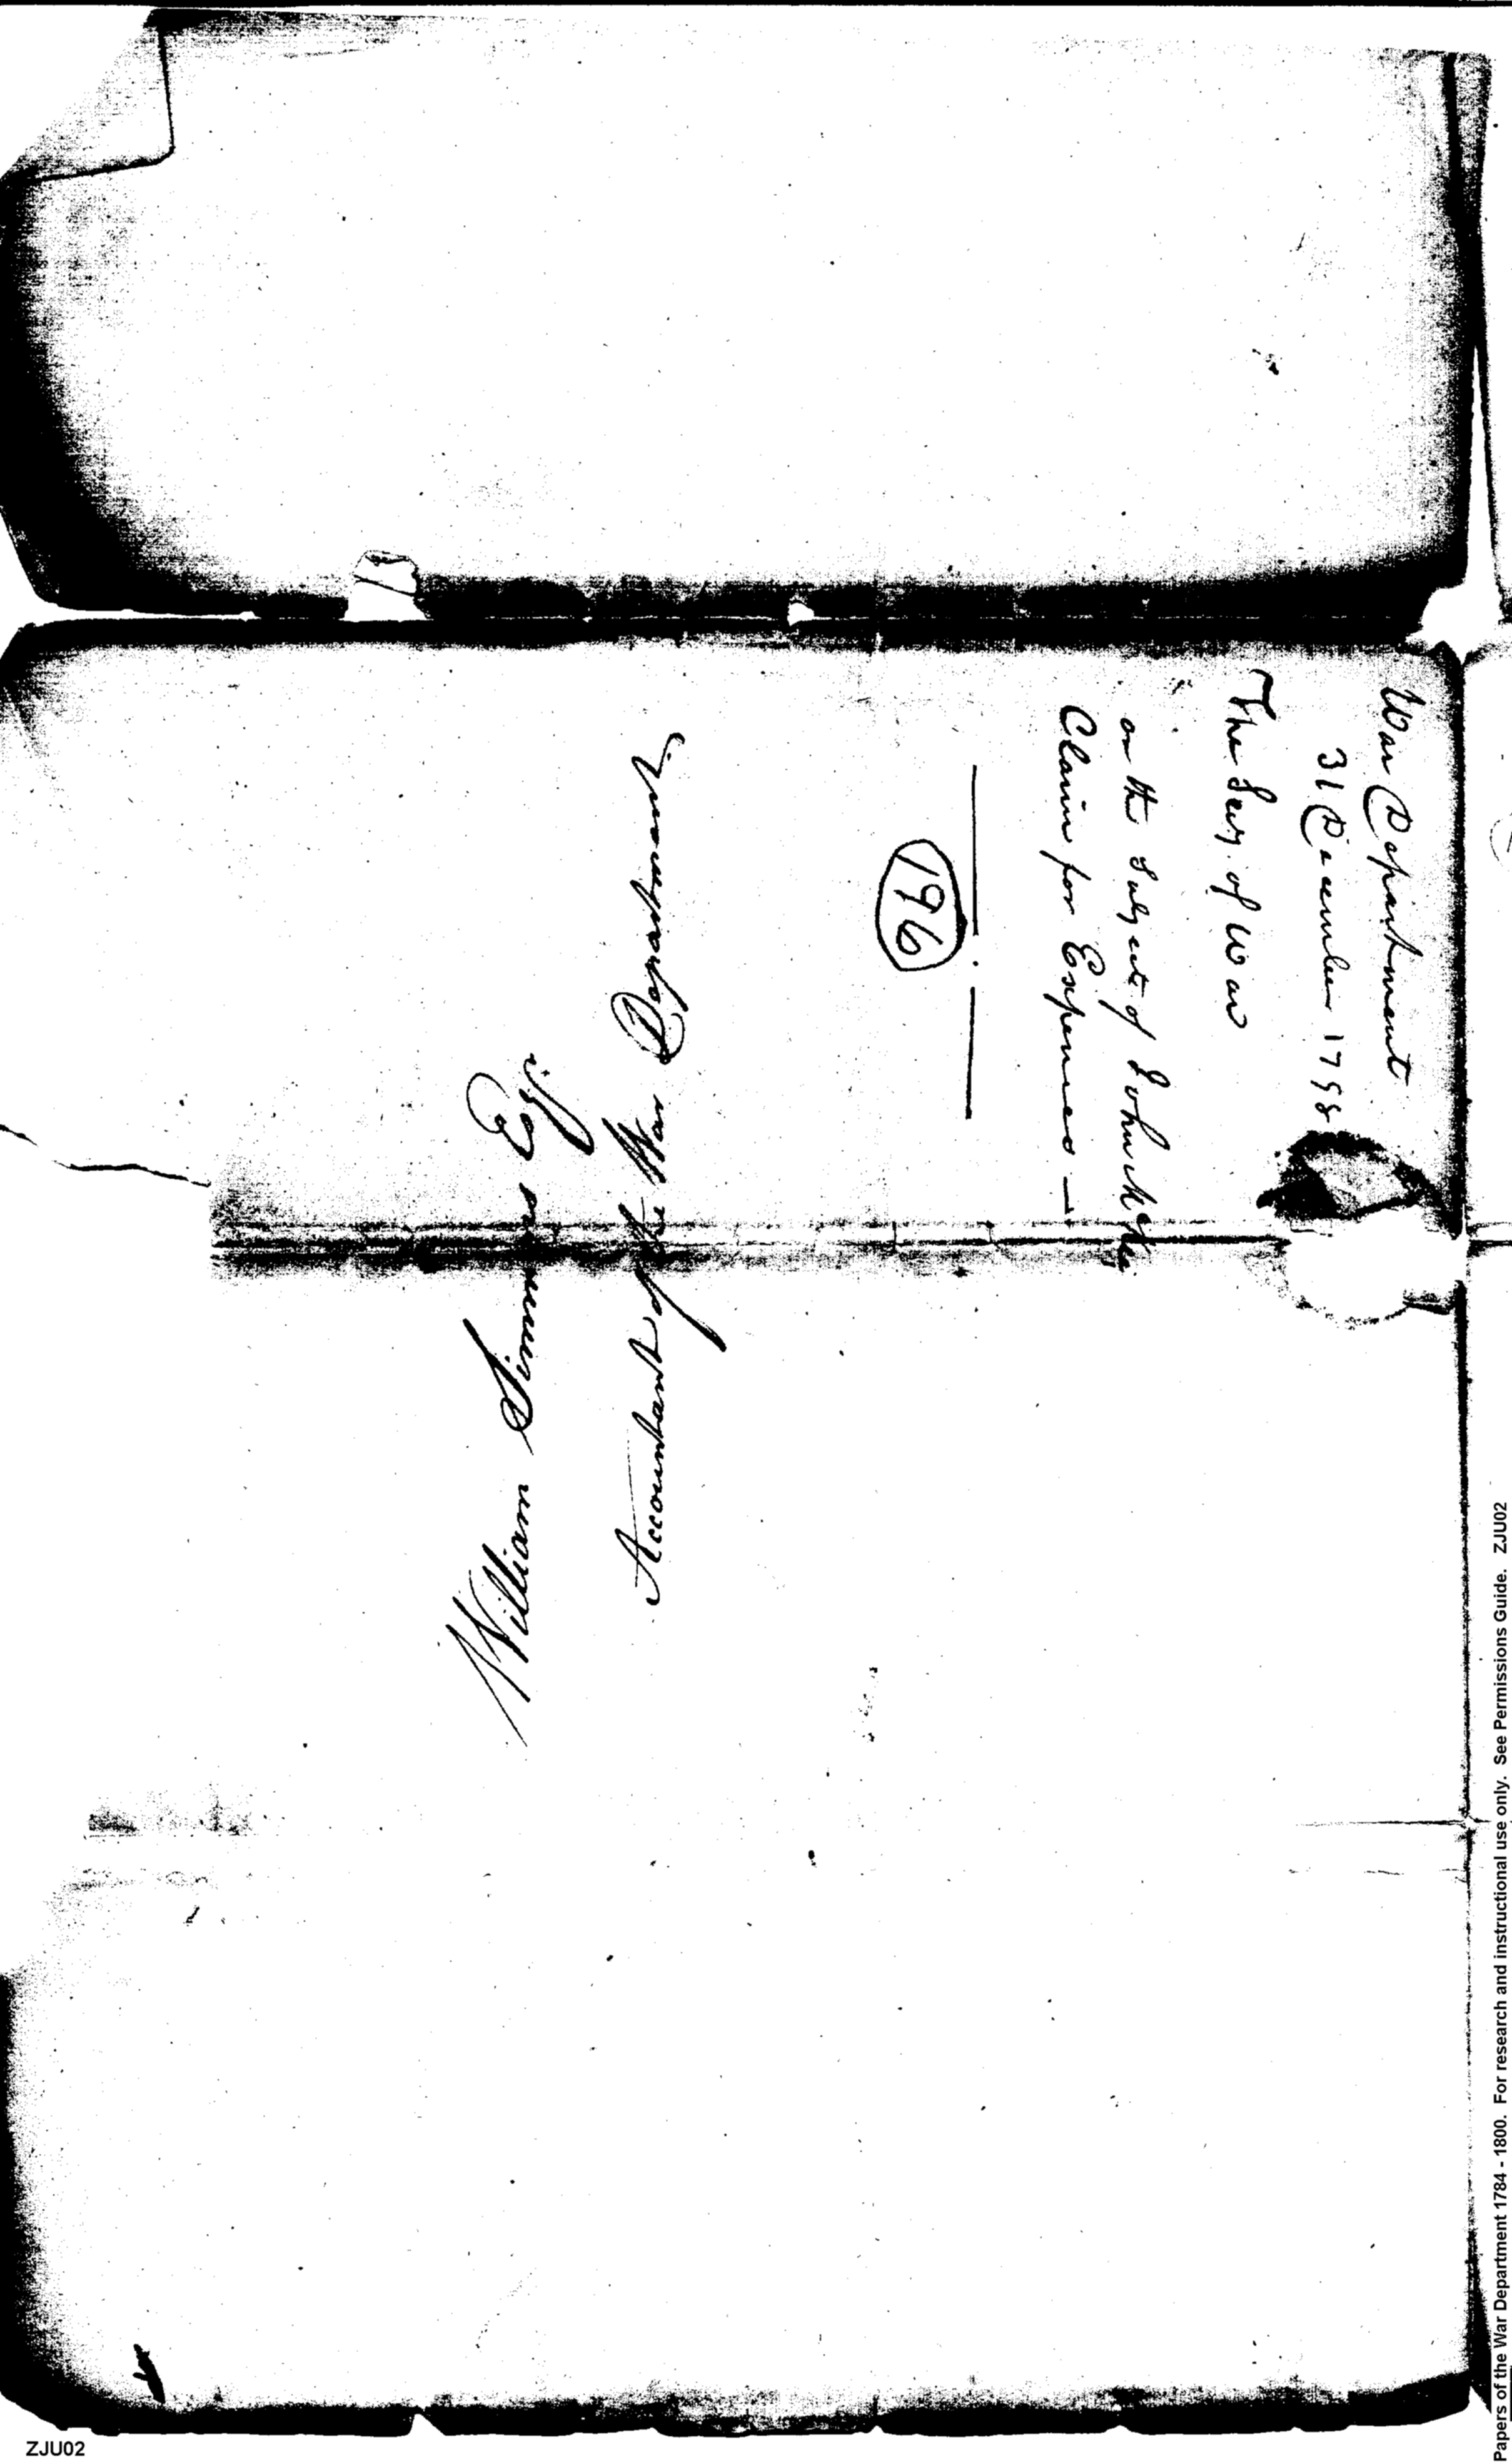 War Department
31 December 1798
The Secy. of War
on the Subject of John
Claim for Expences —
196
William Simmons Esqr.
Accountant of the War Department
Papers of the War Department 1784 - 1800. For research and instructional use only. See Permissions Guide. ZJU02
ZJU02